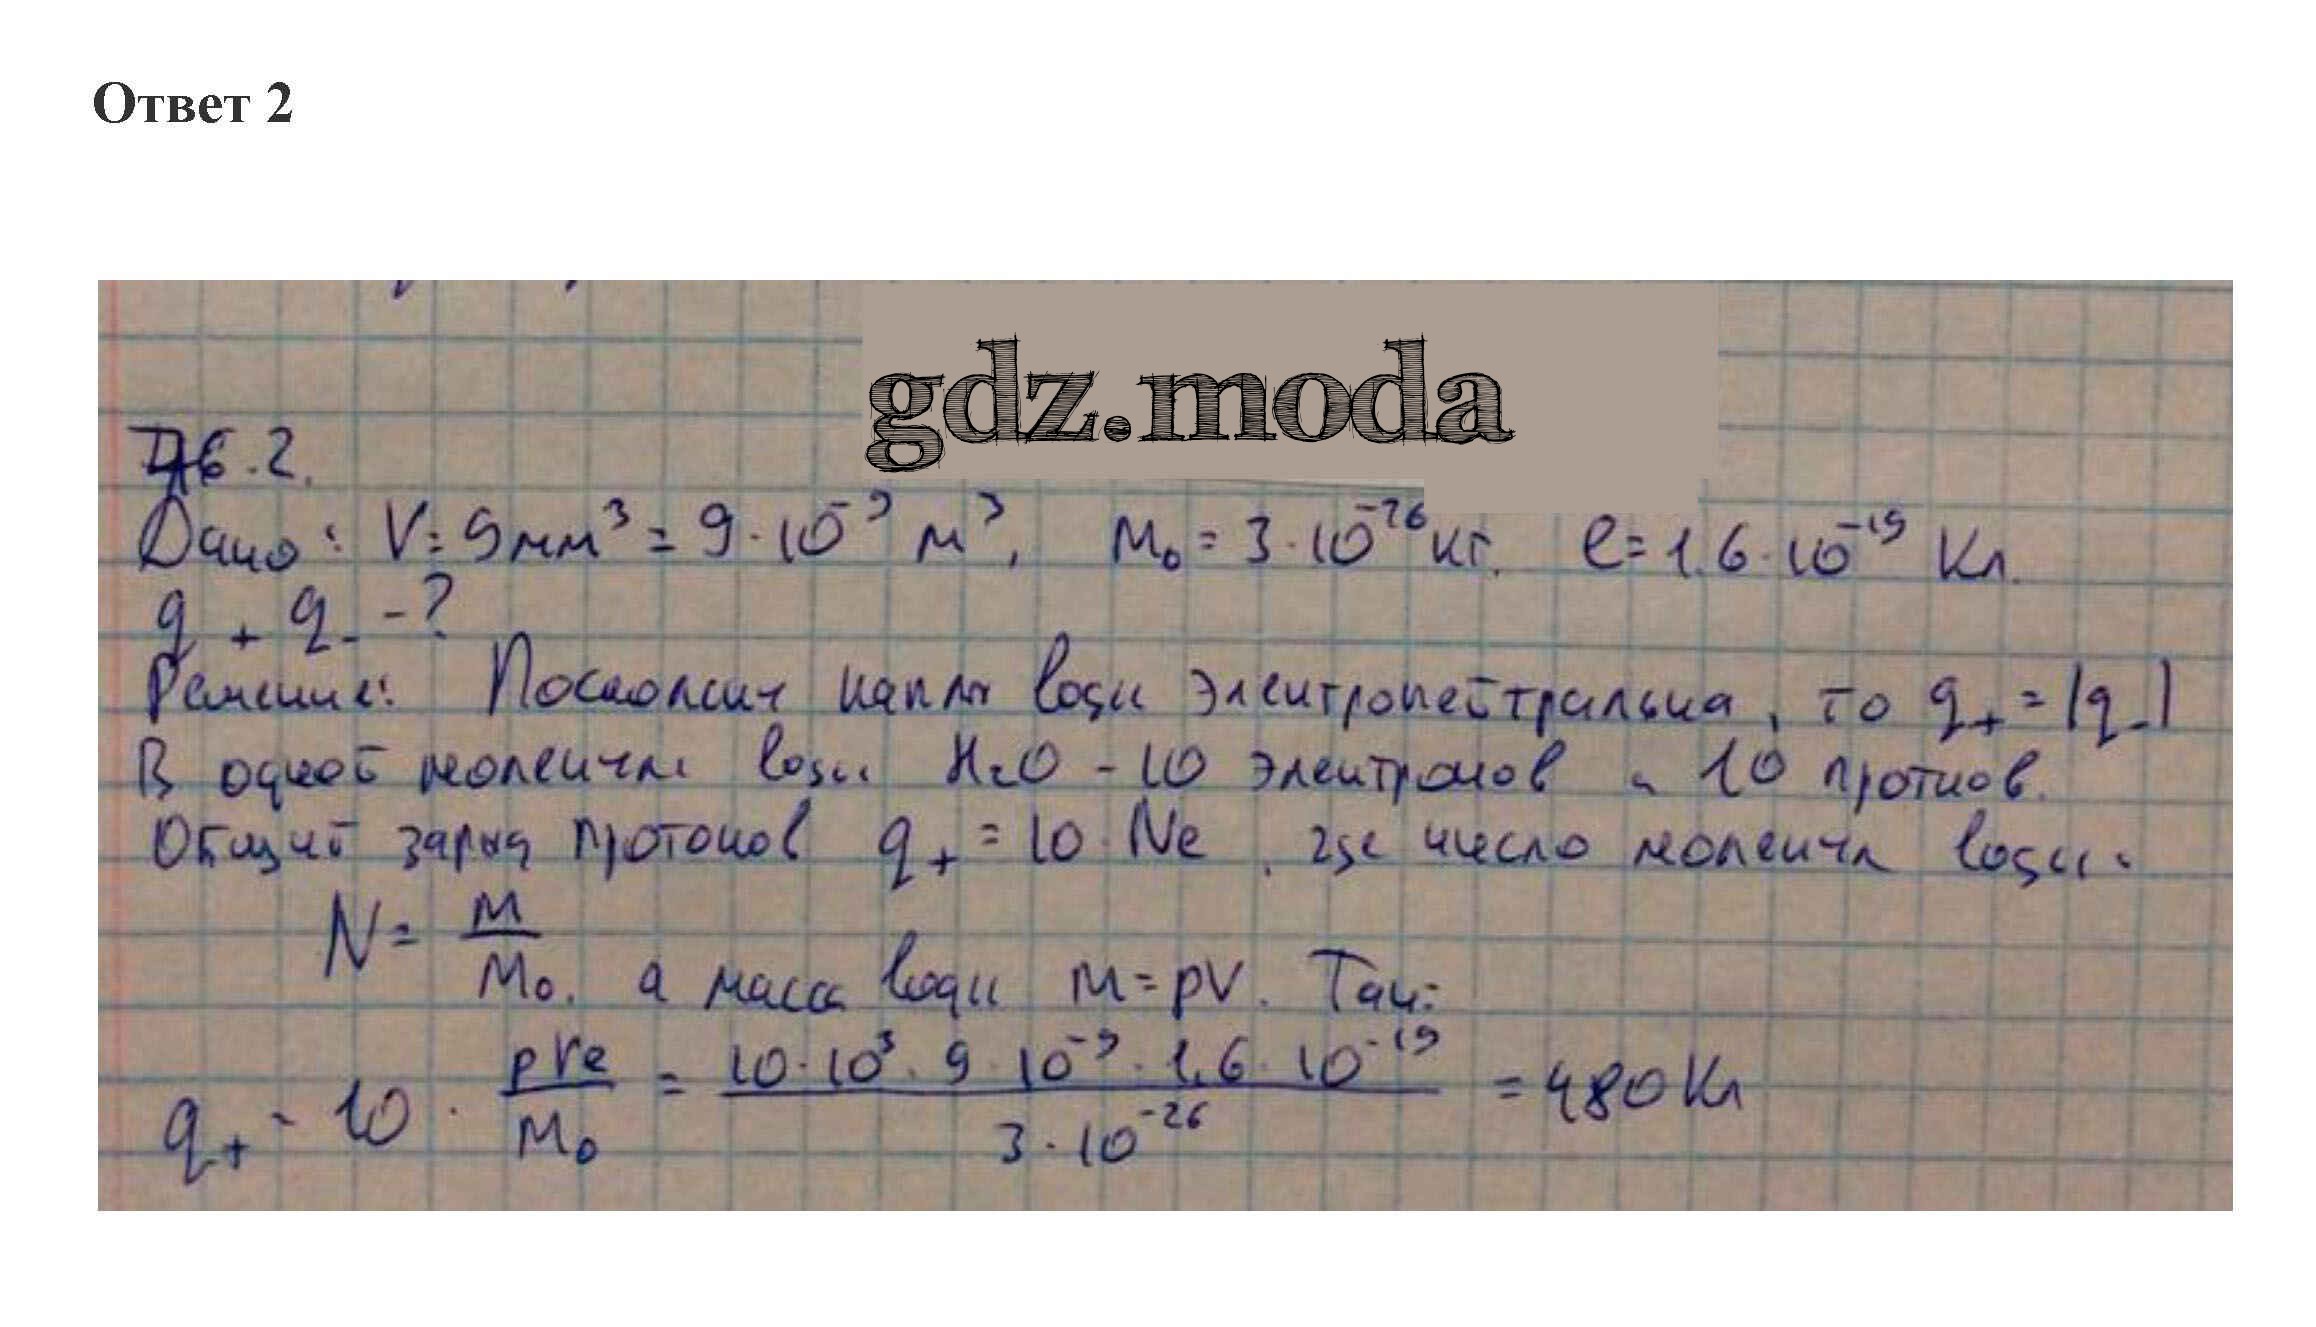 Ответ 2
gdz.moda
Д6.2.
Дано: V = 9мм³ = 9·10⁻⁹ м³, m₀ = 3·10⁻²⁶ кг. e = 1.6·10⁻¹⁹ Кл.
q₊ q₋ - ?
Решение: Поскольку капля воды электронейтральна, то q₊ = |q₋|
В одной молекуле воды H₂O - 10 электронов и 10 протнов.
Общий заряд протонов q₊ = 10·Ne, где число молекул воды:
N = m/m₀. а масса воды m = ρV. Так:
q₊ - 10 · ρVe/m₀ = 10·10³·9·10⁻⁹·1,6·10⁻¹⁹/3·10⁻²⁶ = 480 Кл